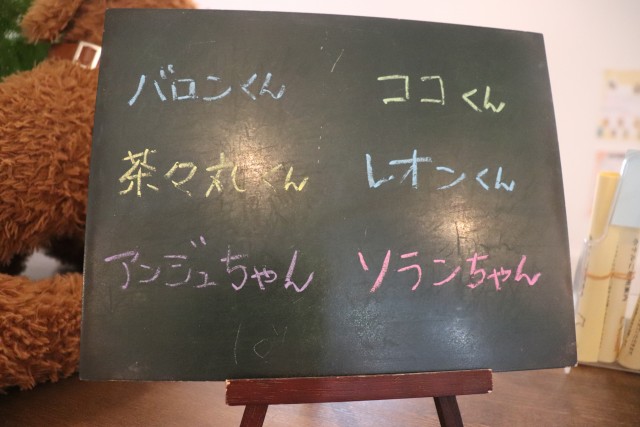 バロンくん
ココくん
茶々丸くん
レオンくん
アンジュちゃん
ソランちゃん